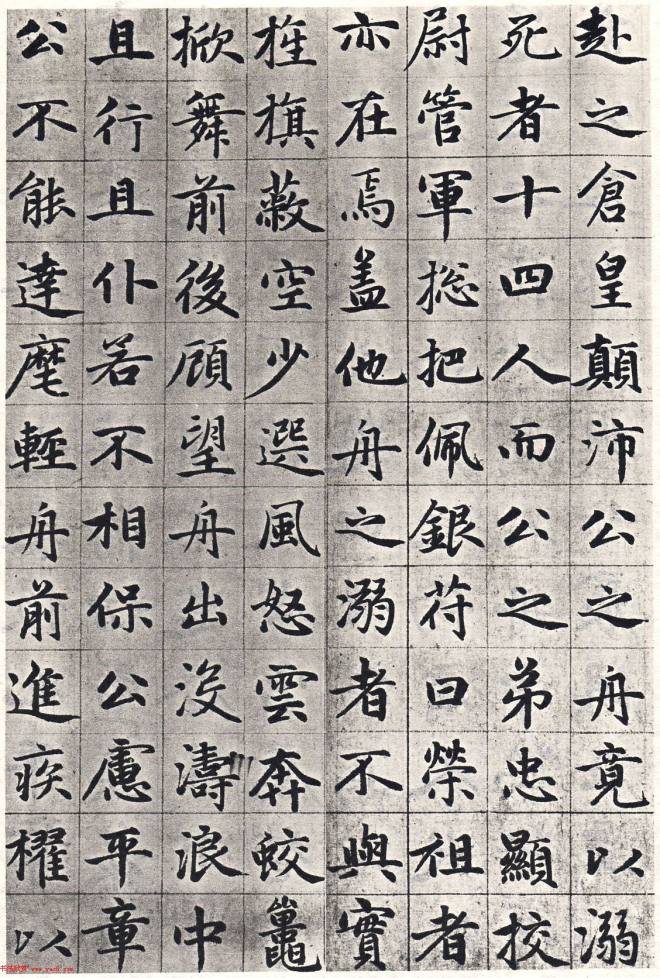 赴之倉皇顛沛公之舟竟以溺
死者十四人而公之弟忠顯挍
尉管軍捴把佩銀苻曰榮祖者
亦在焉盖他舟之溺者不與實
旌旗蔽空少選風怒雲奔蛟鼉
掀舞前後顧望舟出没濤浪中
且行且仆若不相保公慮平章
公不能達麾輕舟前進疾櫂以